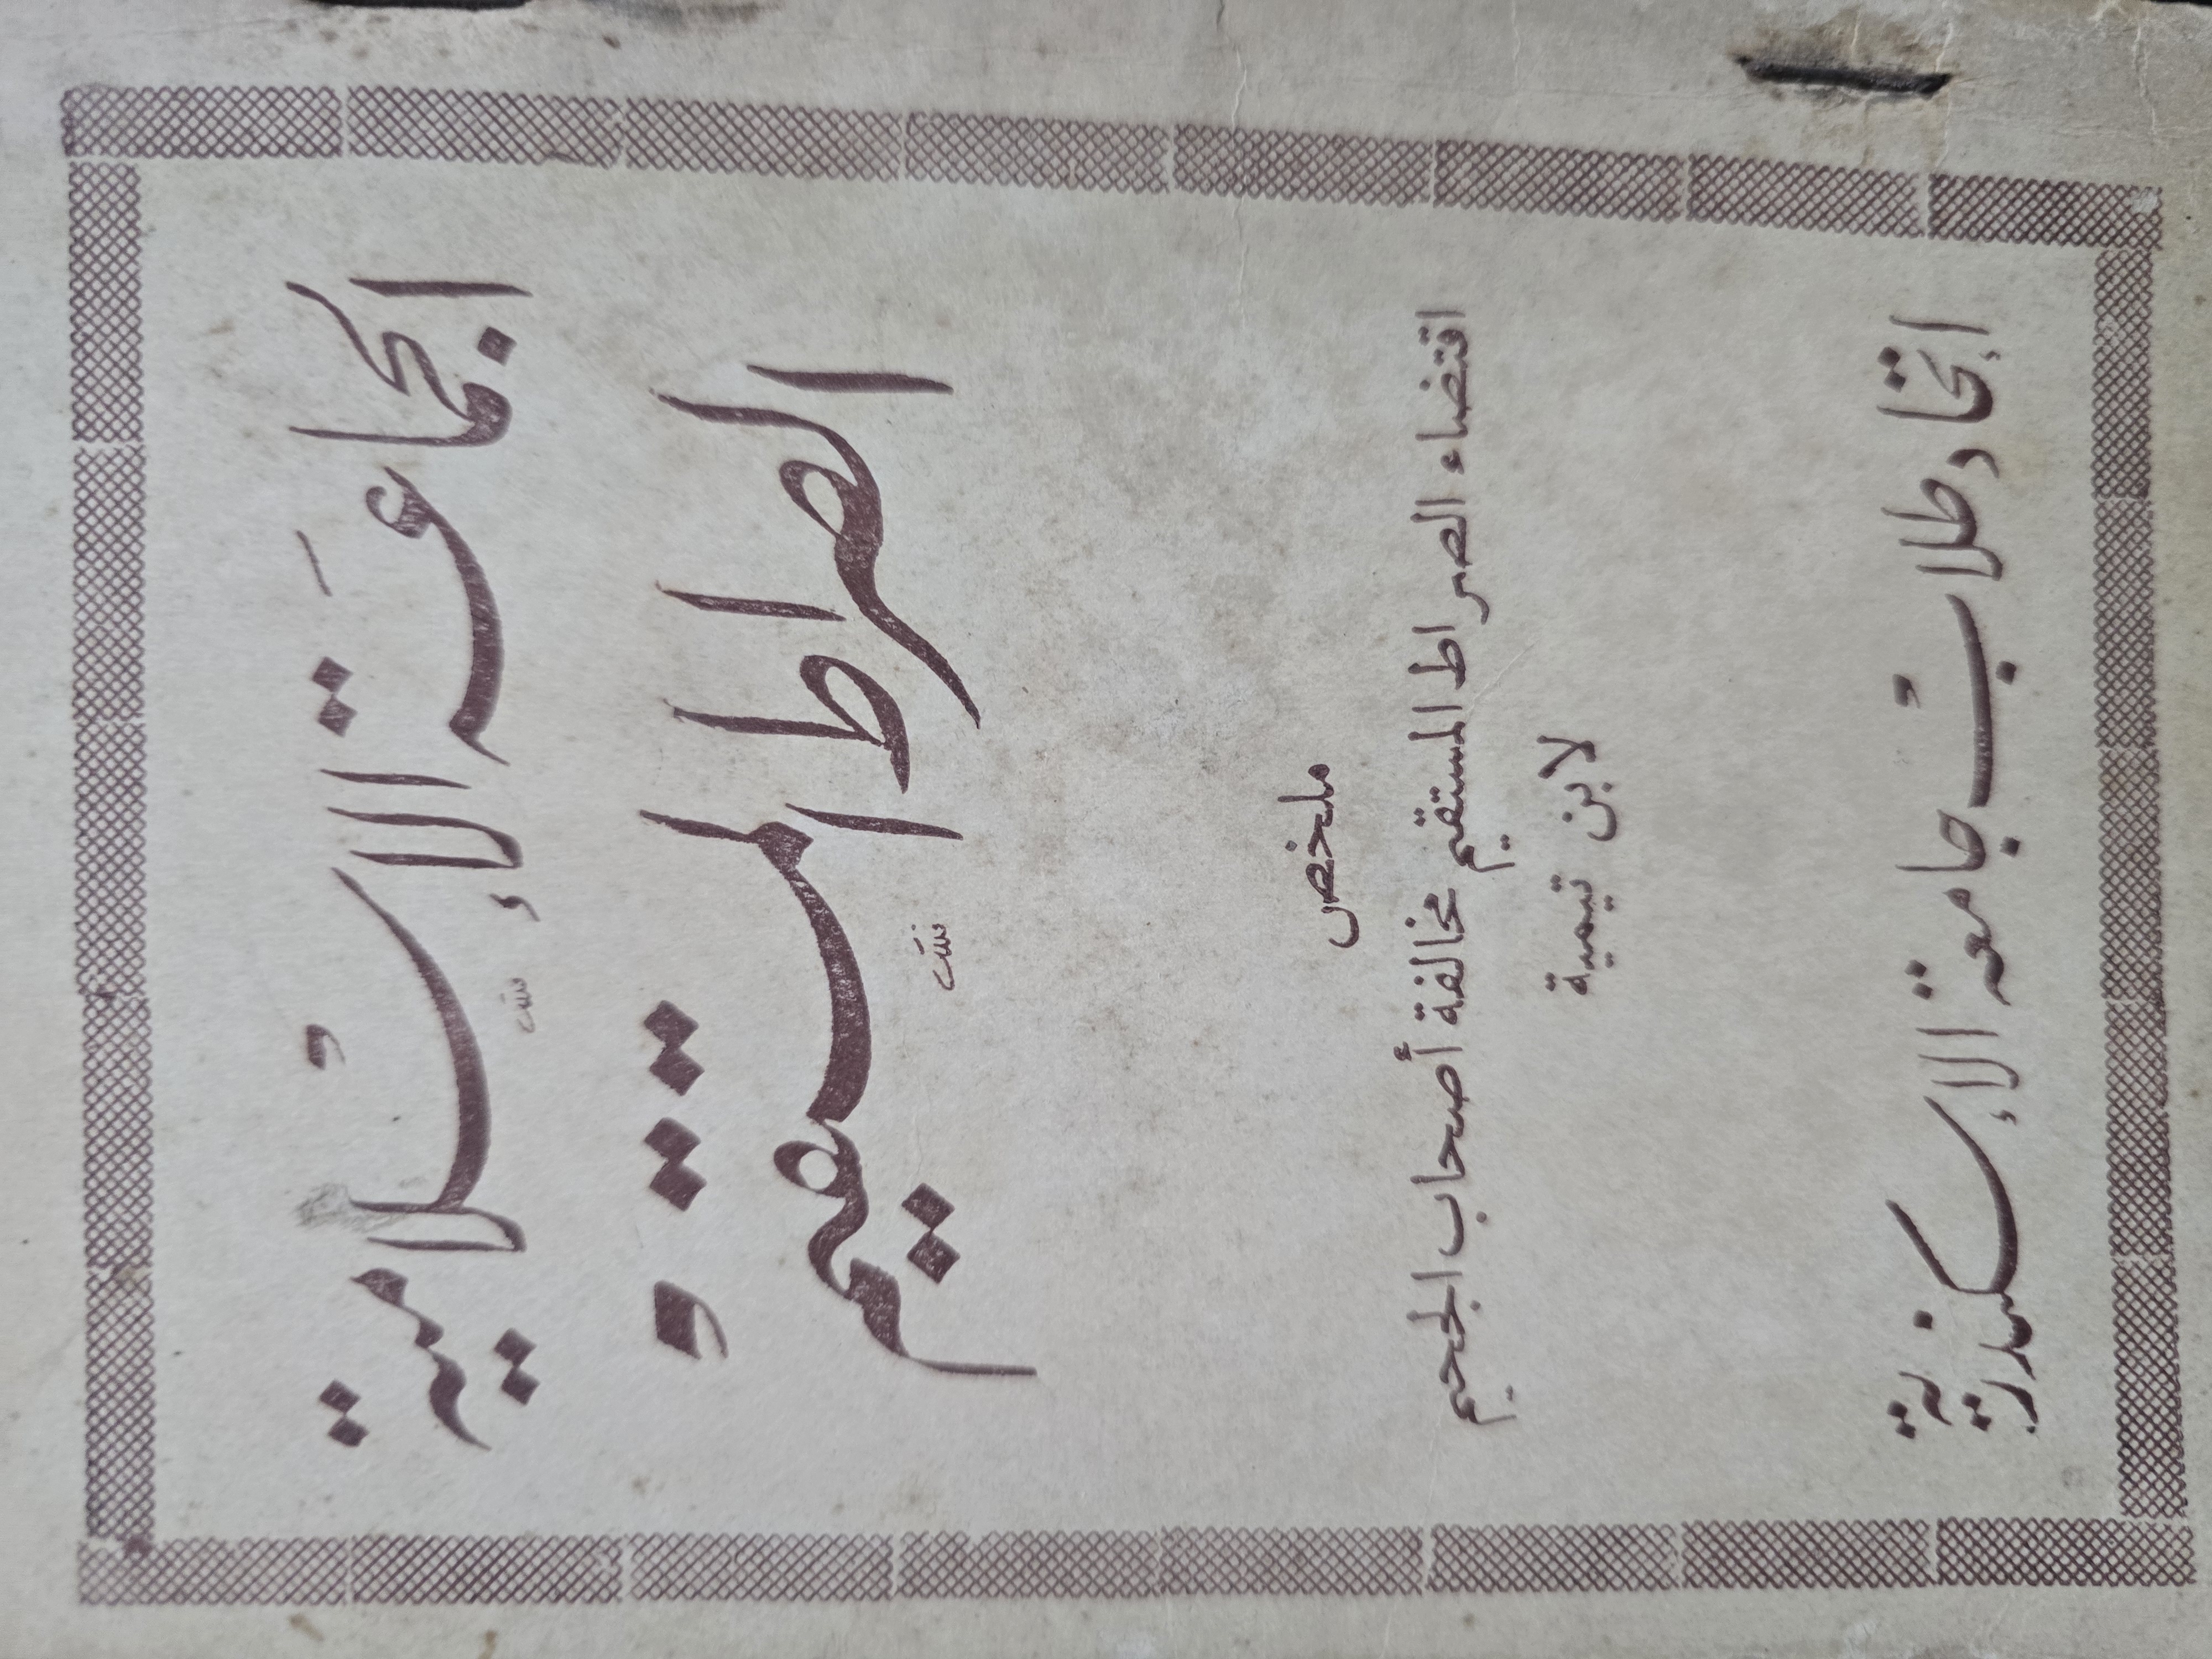 الجماعة الإسلامية
الصراط المستقيم
ملخص
اقتضاء الصراط المستقيم مخالفة أصحاب الجحيم
لابن تيمية
إتحاد طلاب جامعة الإسكندرية